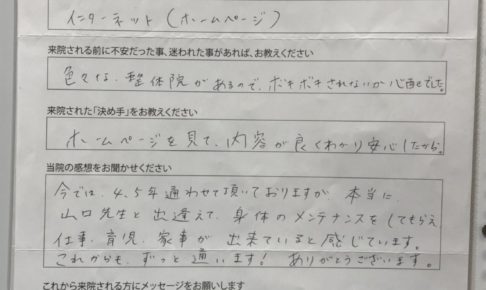 インターネット(ホームページ)
来院される前に不安だった事、迷われた事があれば、お教えください
色々な、整体院があるので、ボキボキされないか心配でした。
来院された「決め手」をお教えください
ホームページを見て、内容が良くわかり安心したから。
当院の感想をお聞かせください
今では、4、5年通わせて頂いておりますが、本当に
山口先生と出逢えて、身体のメンテナンスをしてもらえ
仕事、育児、家事が出来ていると感じています。
これからも、ずっと通います! ありがとうございます。
これから来院される方にメッセージをお願いします